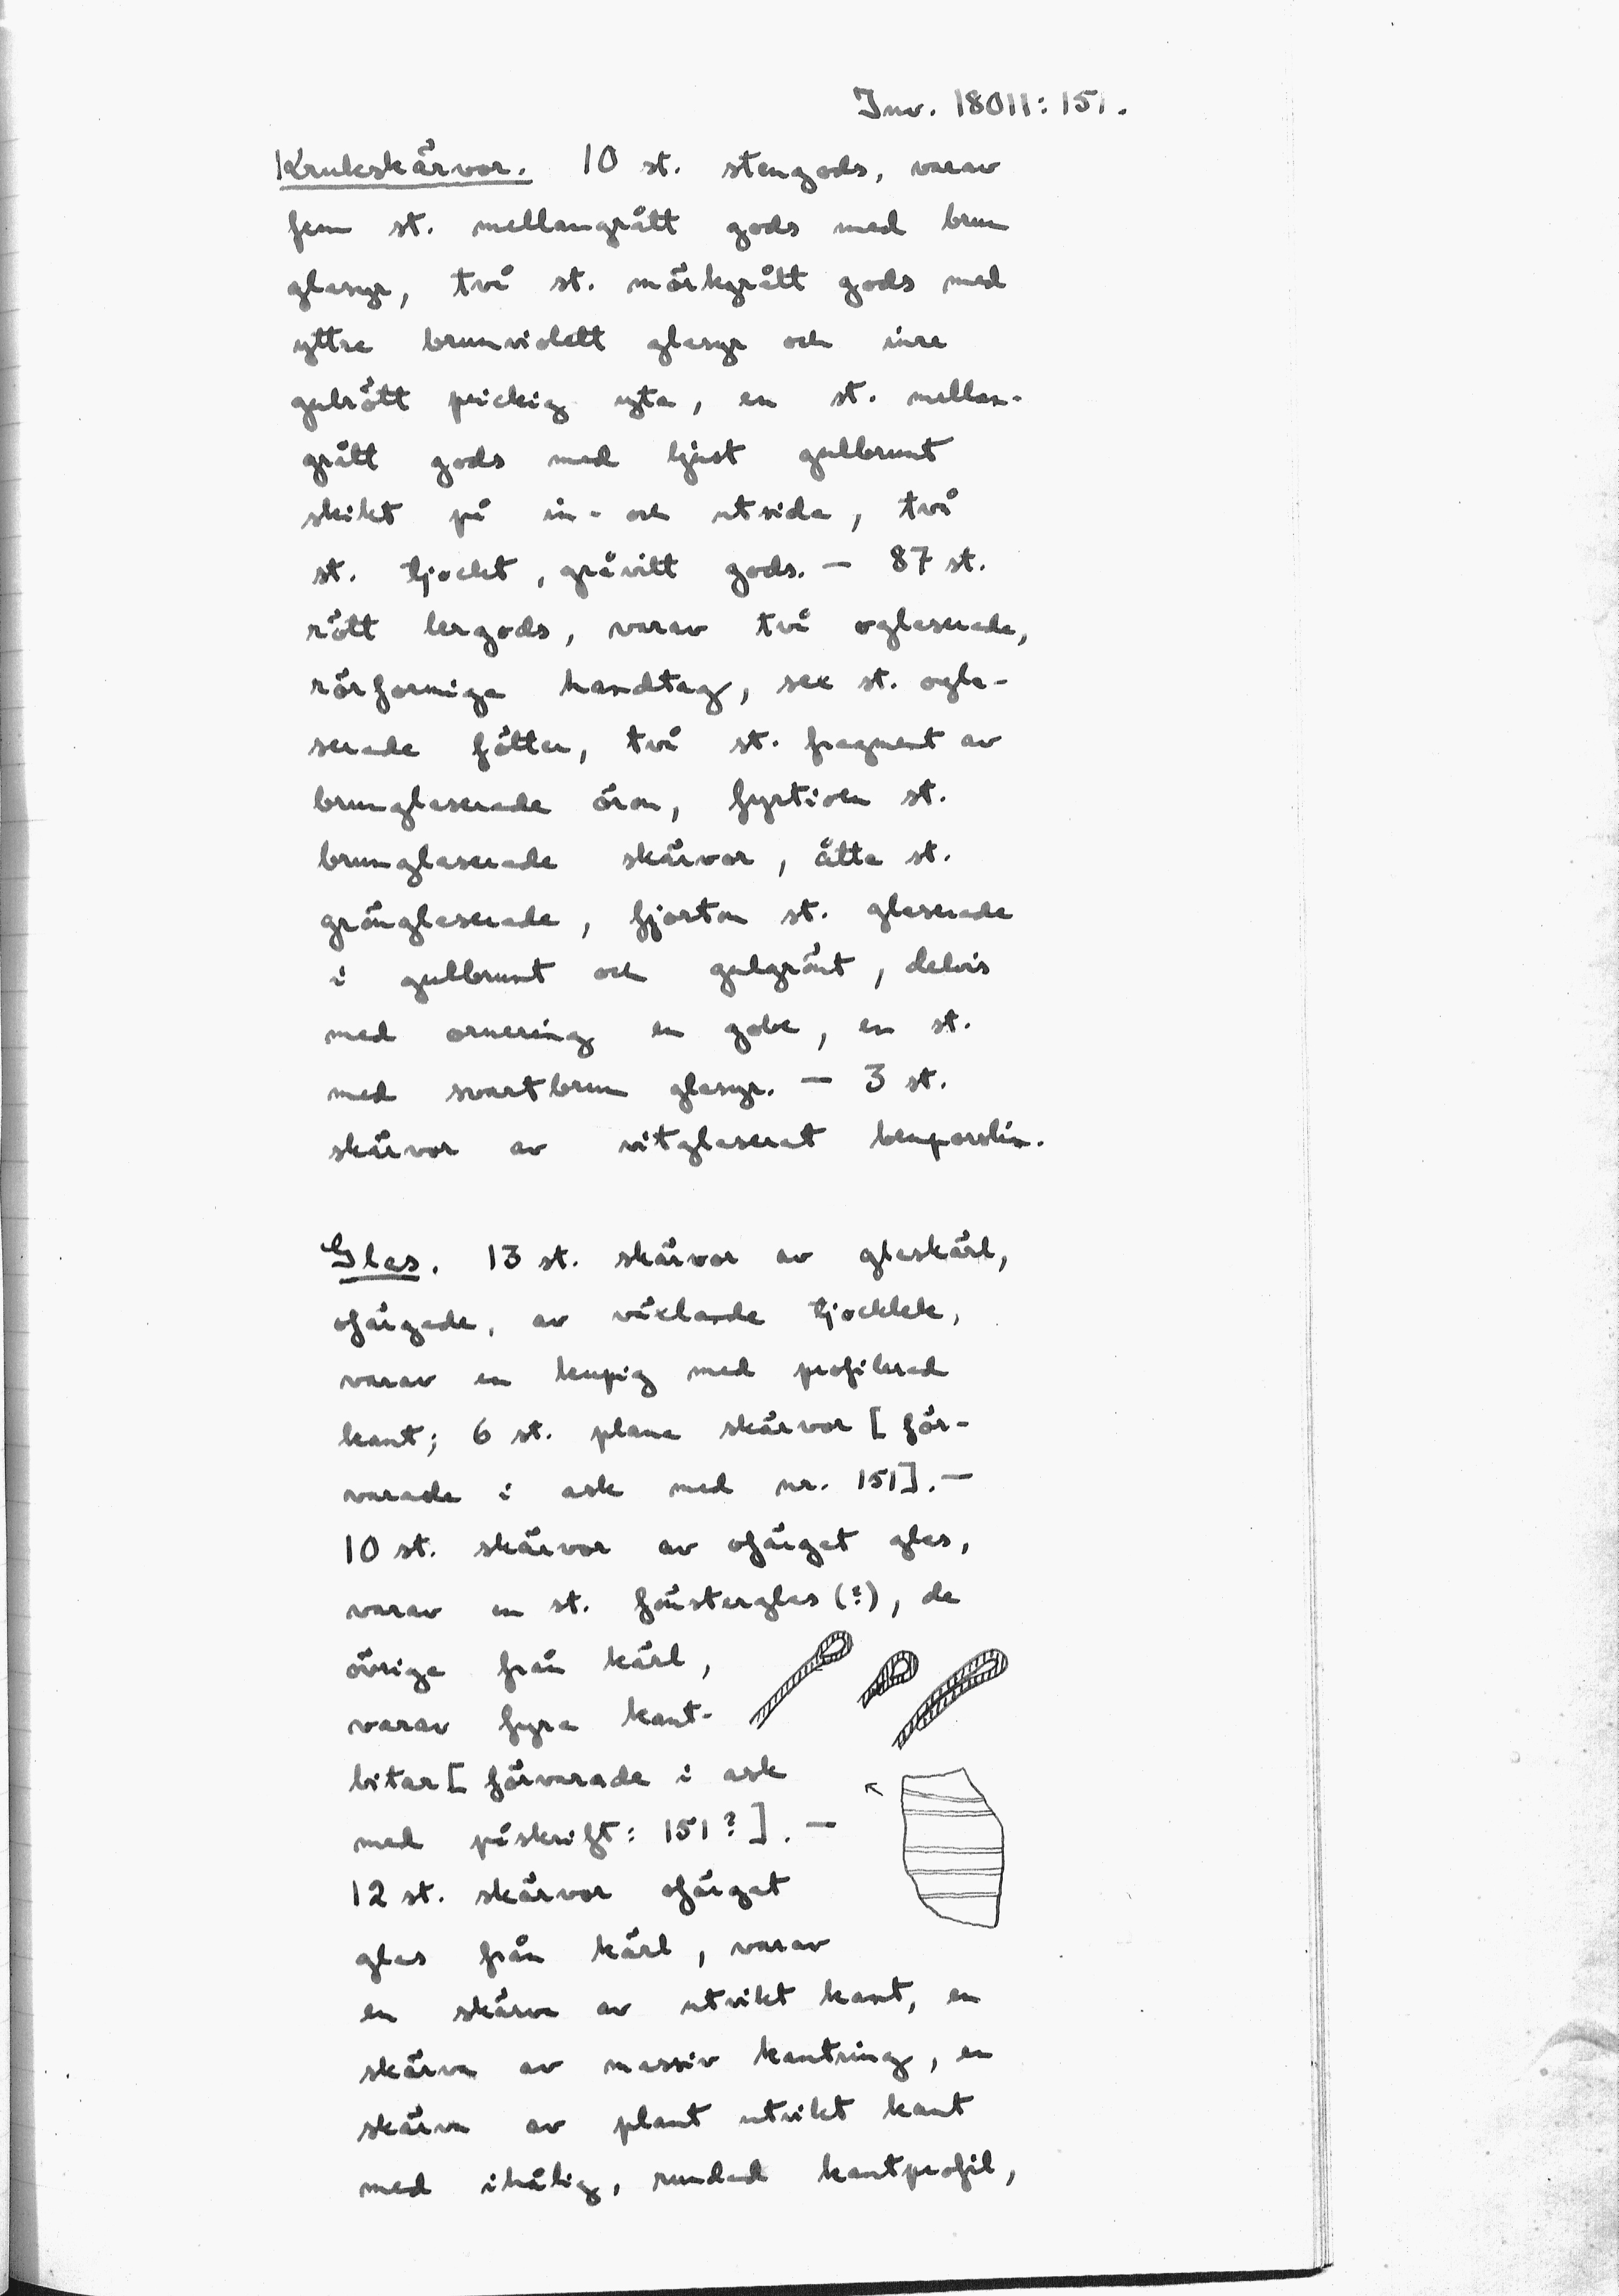 Inv. 18011:151.
Krukskärvor. 10 st. stengods, varav
fem st. mellangrått gods med brun
glasyr, två st. mörkgrått gods med
yttre brunviolett glasyr och inre
gulrött prickig yta, en st. mellan-
grått gods med ljust gulbrunt
skikt på in- och utsida, två
st. tjockt, gråvitt gods. — 87 st.
rött lergods, varav två oglaserade,
rörformiga handtag, sex st. ogla-
serade fötter, två st. fragment av
brunglaserade öron, fyrtioen st.
brunglaserade skärvor, åtta st.
grönglaserade, fjorton st. glaserade
i gulbrunt och gulgrönt, delvis
med ornering en gobe, en st.
med svartbrun glasyr. — 3 st.
skärvor av vitglaserat benporslin.
Glas. 13 st. skärvor av glaskärl,
ofärgade, av växlande tjocklek,
varav en kupig med profilerad
kant; 6 st. plana skärvor [för-
varade i ask med nr. 151]. —
10 st. skärvor av ofärgat glas,
varav en st. fönsterglas (?), de
övriga från kärl,
varav fyra kant-
bitar [förvarade i ask
med påskrift: 151?]. —
12 st. skärvor ofärgat
glas från kärl, varav
en skärva av utvikt kant, en
skärva av massiv kantring, en
skärva av plant utvikt kant
med ihålig, rundad kantprofil,